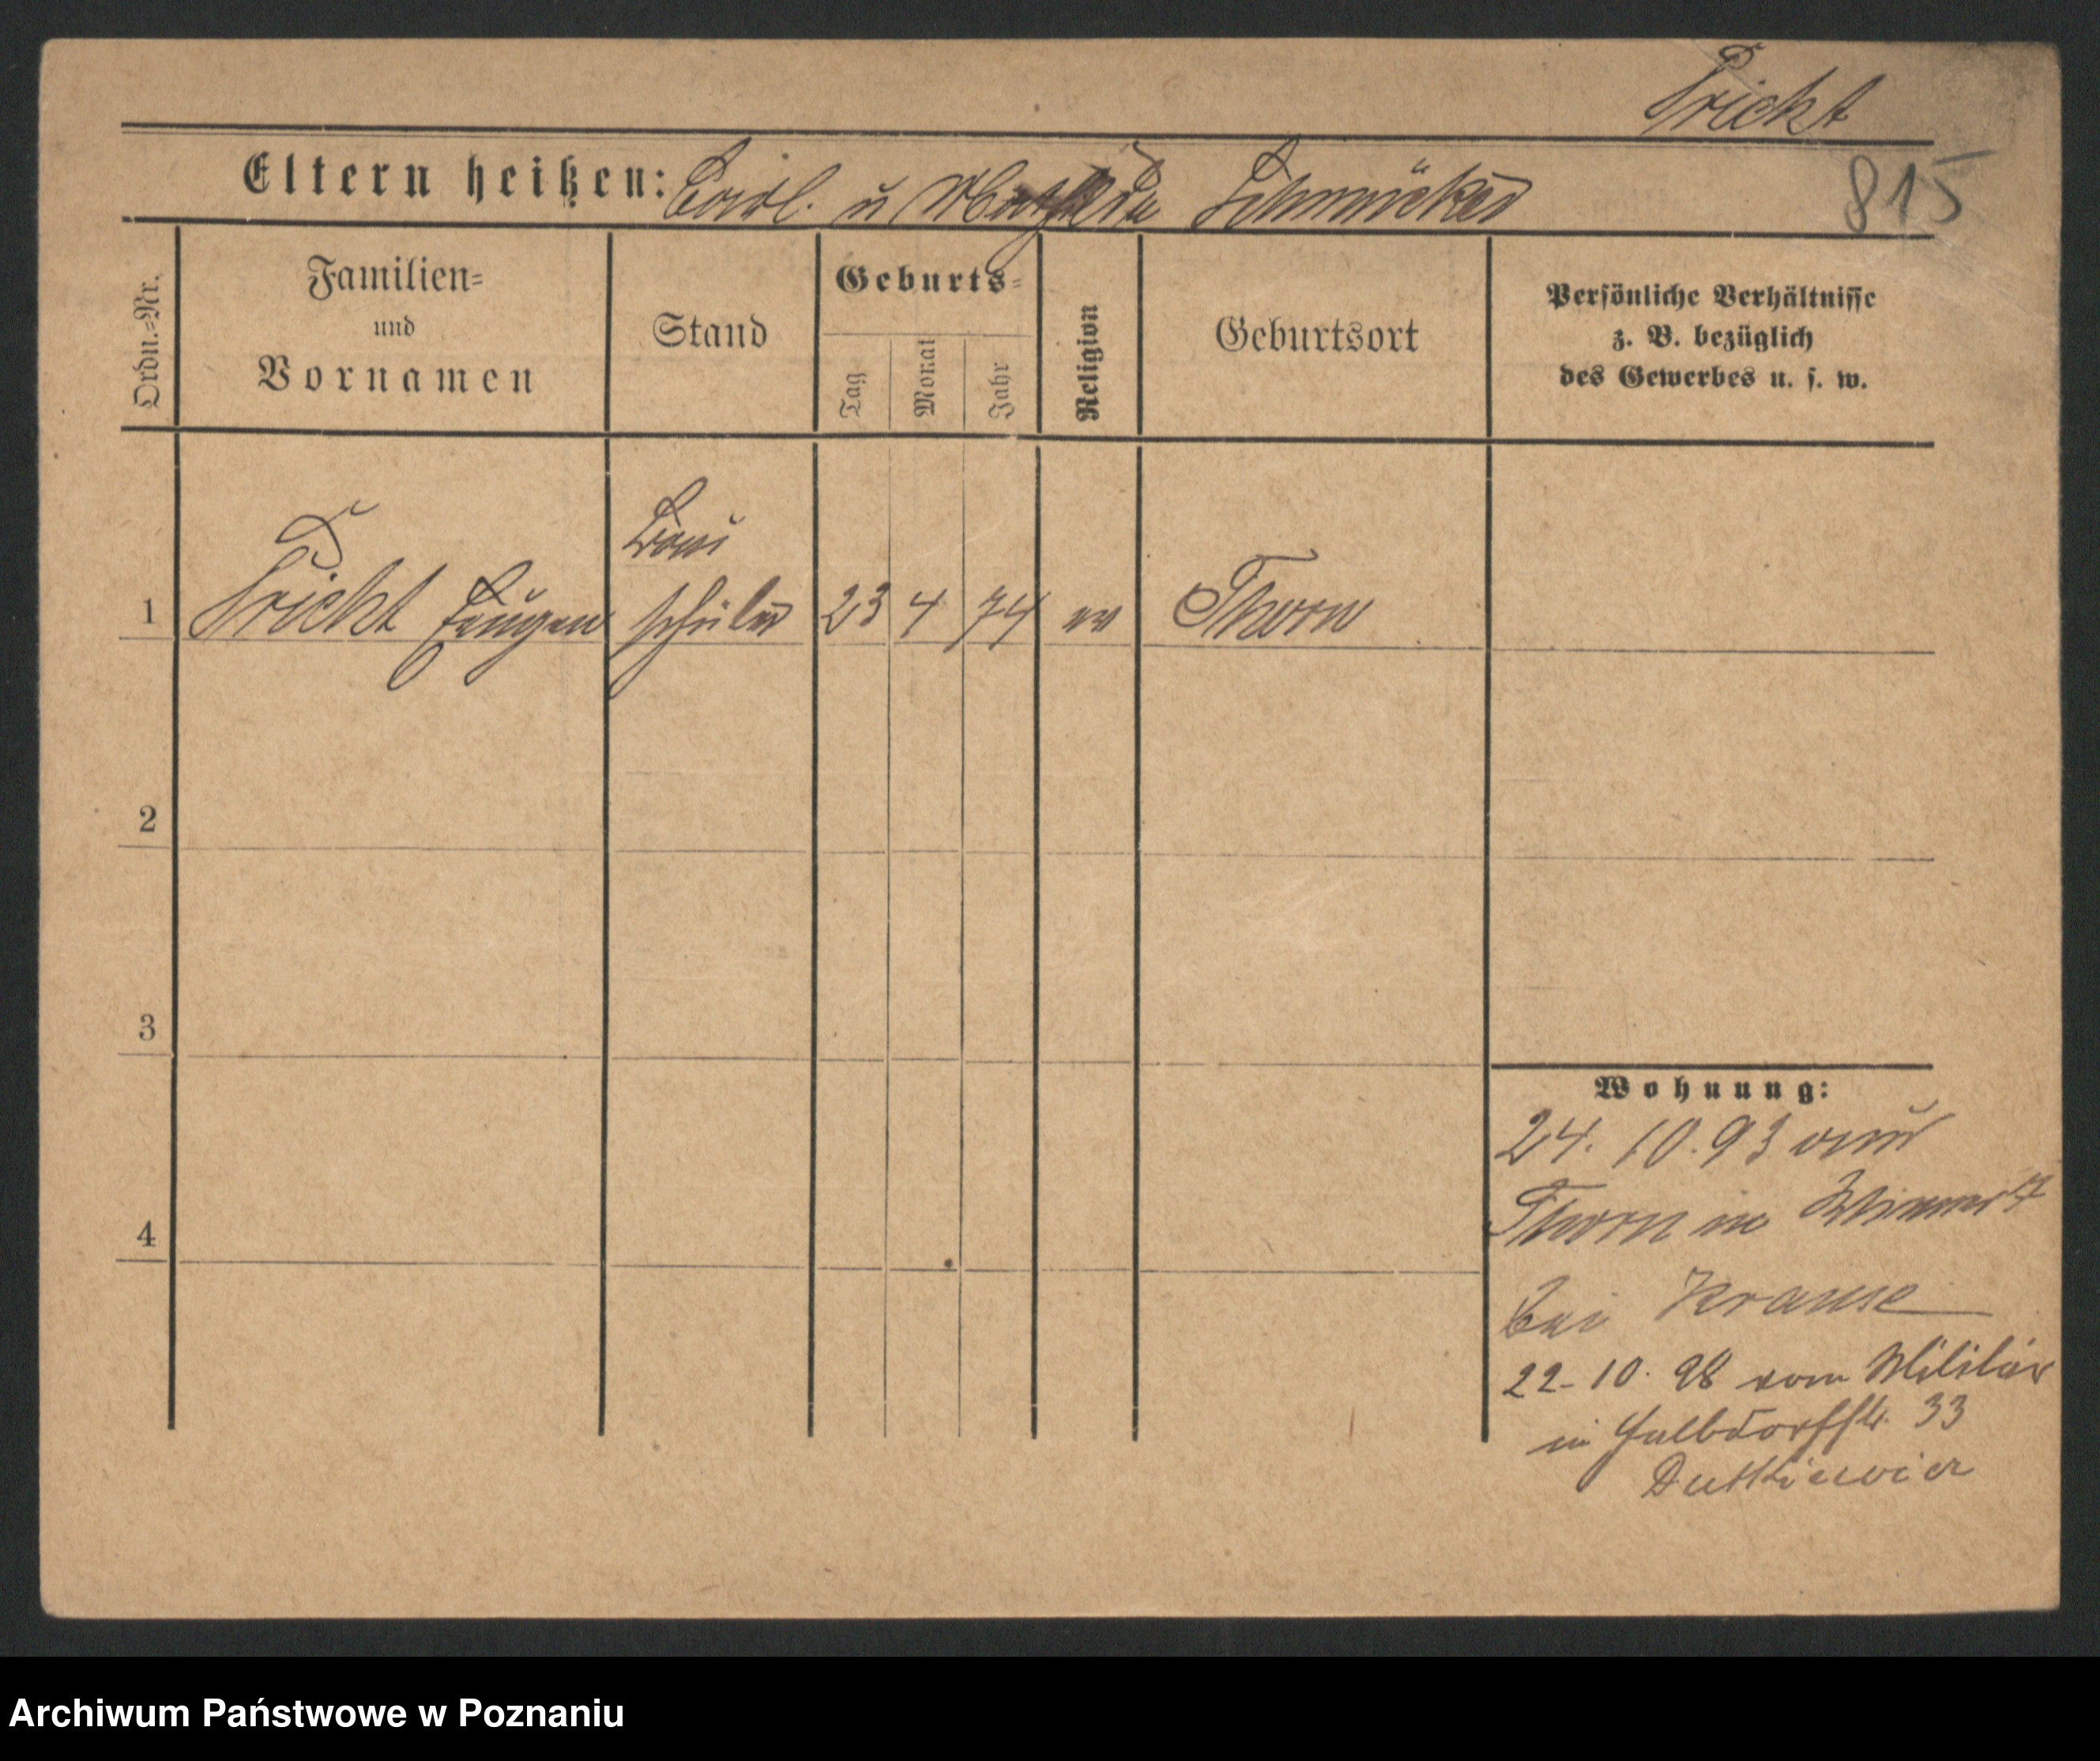 Prickt
Eltern heißen: Carl. u Schmücker
815
Ordn.-Nr.
Familien-
und
Vornamen
Stand
Geburts-
Tag
Monat
Jahr
Religion
Geburtsort
Persönliche Verhältnisse
z. B. bezüglich
des Gewerbes u. s. w.
Bau
1 Prickt Eugen schüler 23 4 74 ev Thorn
2
3
4
Wohnung:
24. 10. 93 aus
Thorn in
bei Krause
22-10. 98 vom Militär
in Halbdorfstr. 33
Dutkiewicz
Archiwum Państwowe w Poznaniu